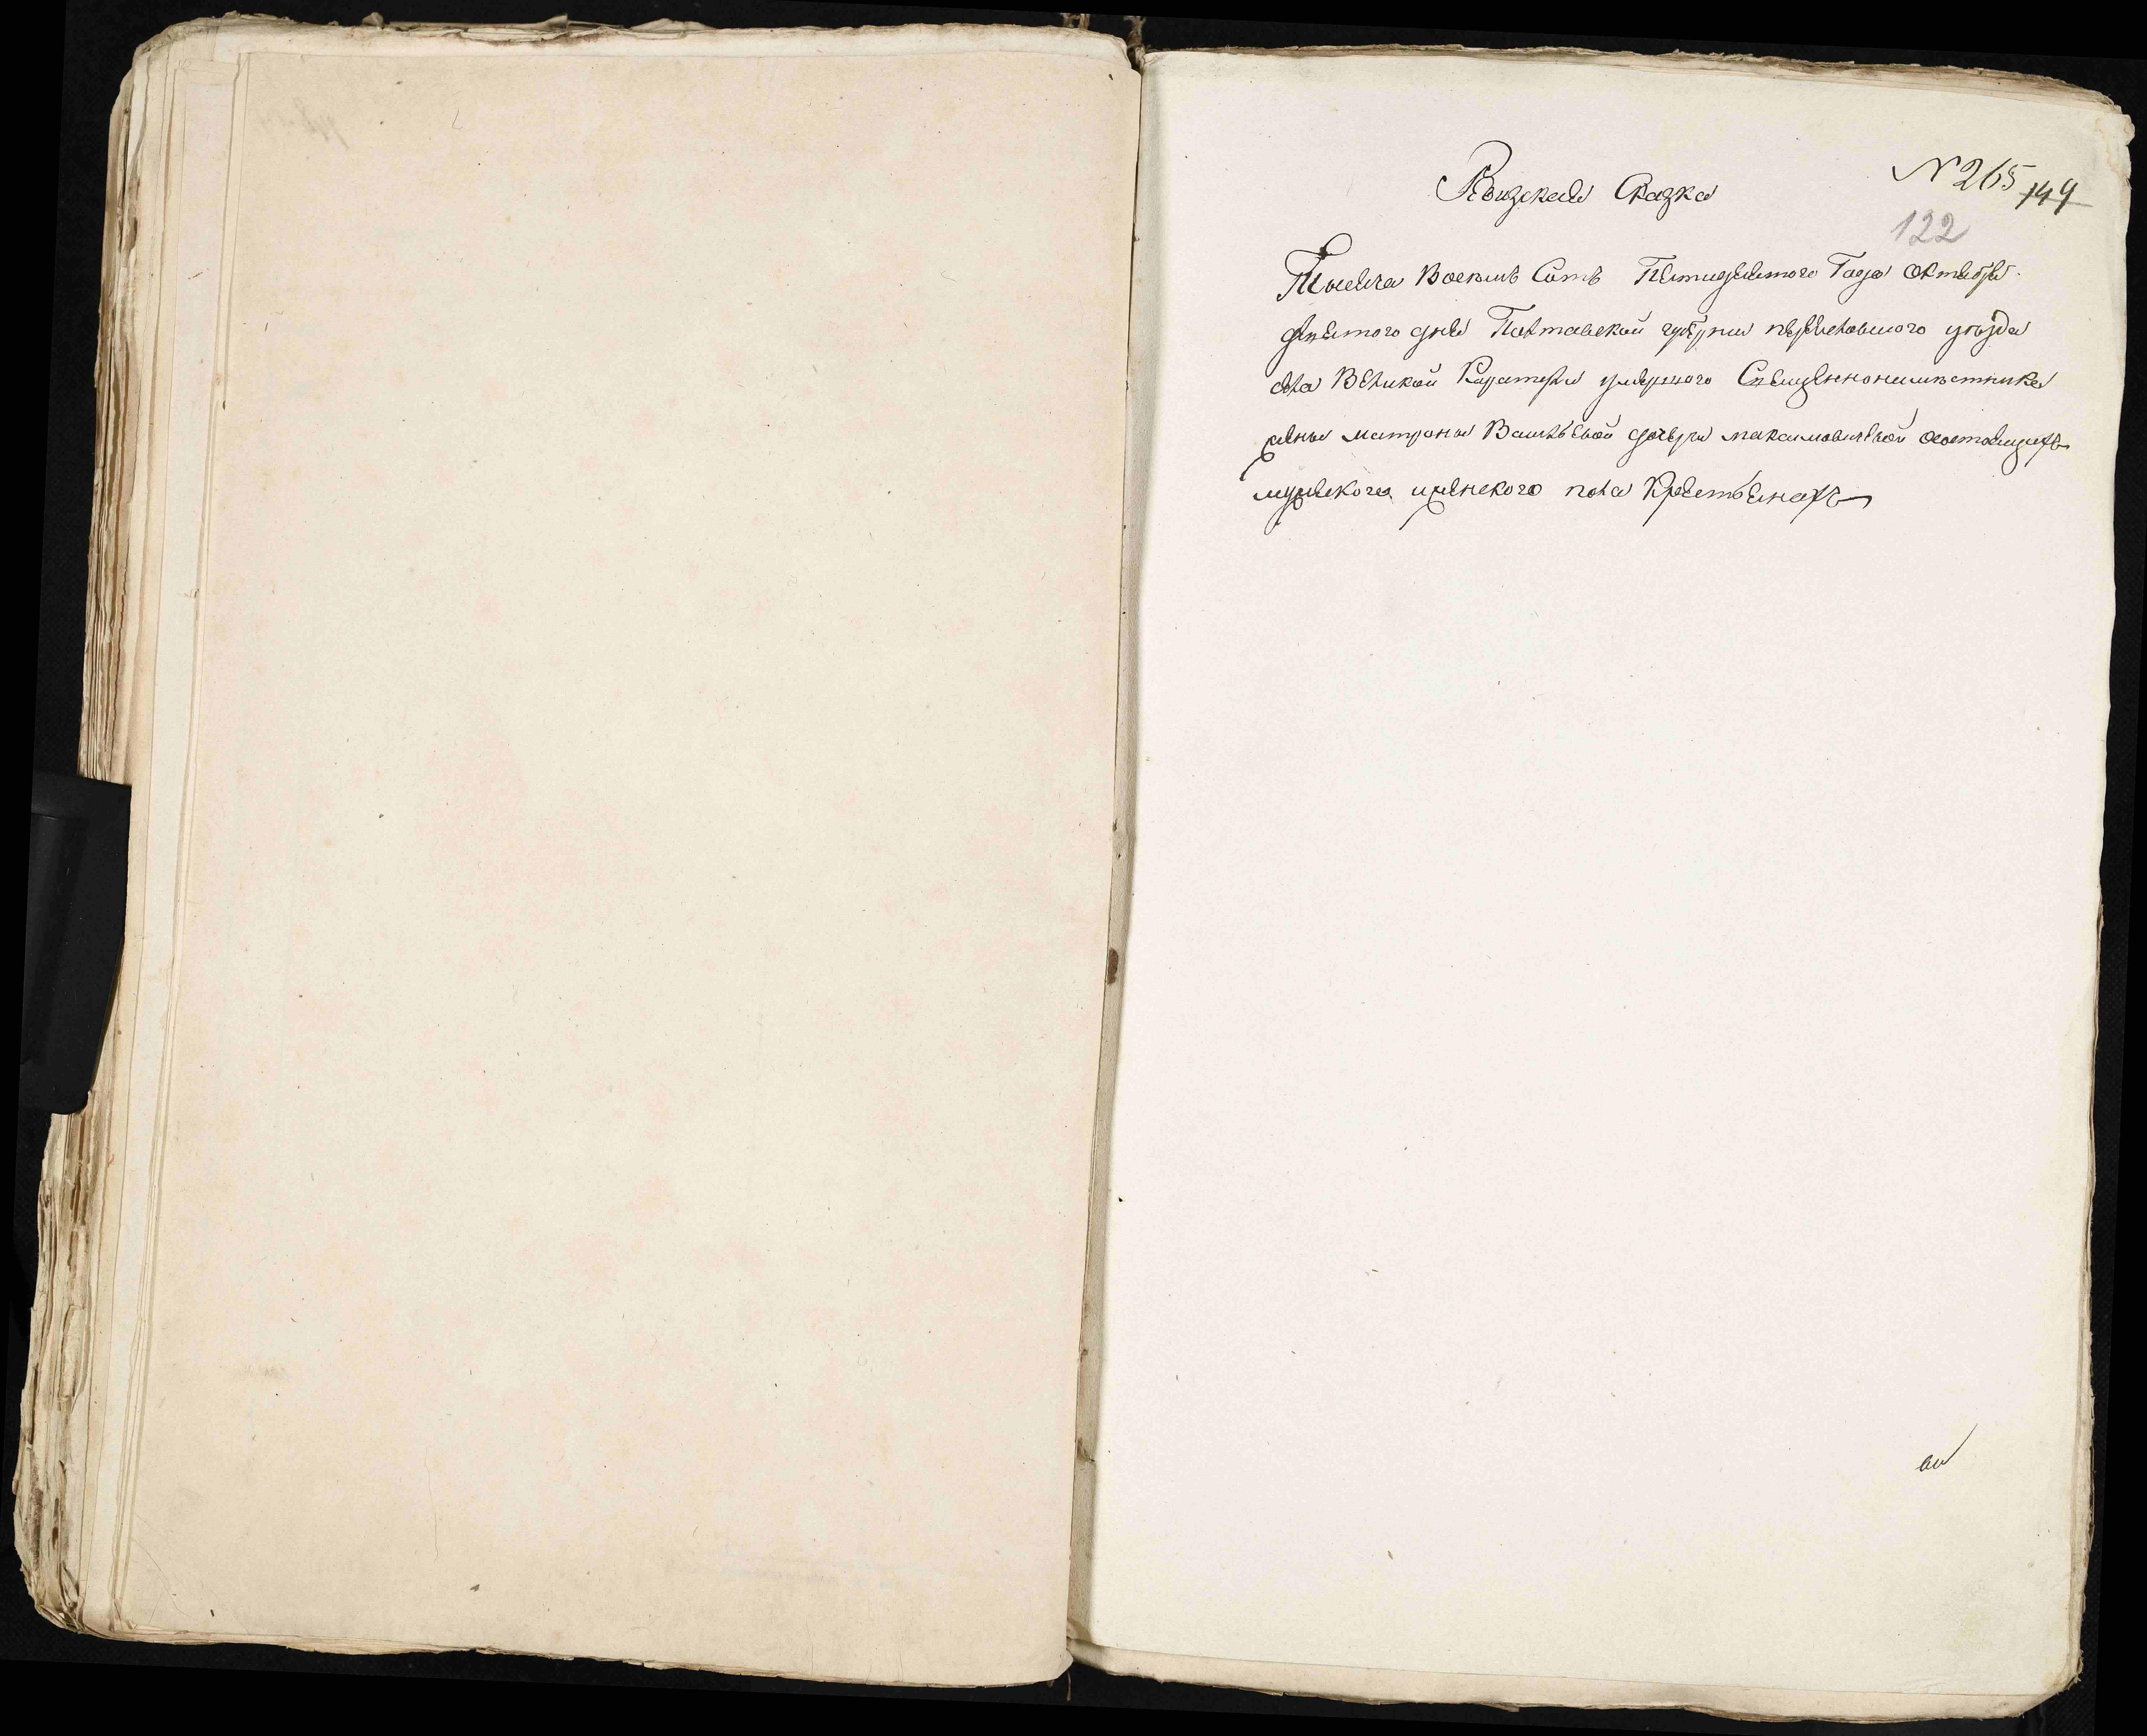 Ревизская Сказка
N 265 144
122
Тысяча Восемь Сотъ Пятидесятого Года октября
девятого дня Полтавской губернии переяславского уезда
села Великой Каратели умершого Священнонаместника
жены матроны Васильевой дочери максимовичевой состоящихъ
мужеска и женского пола Крестьянахъ